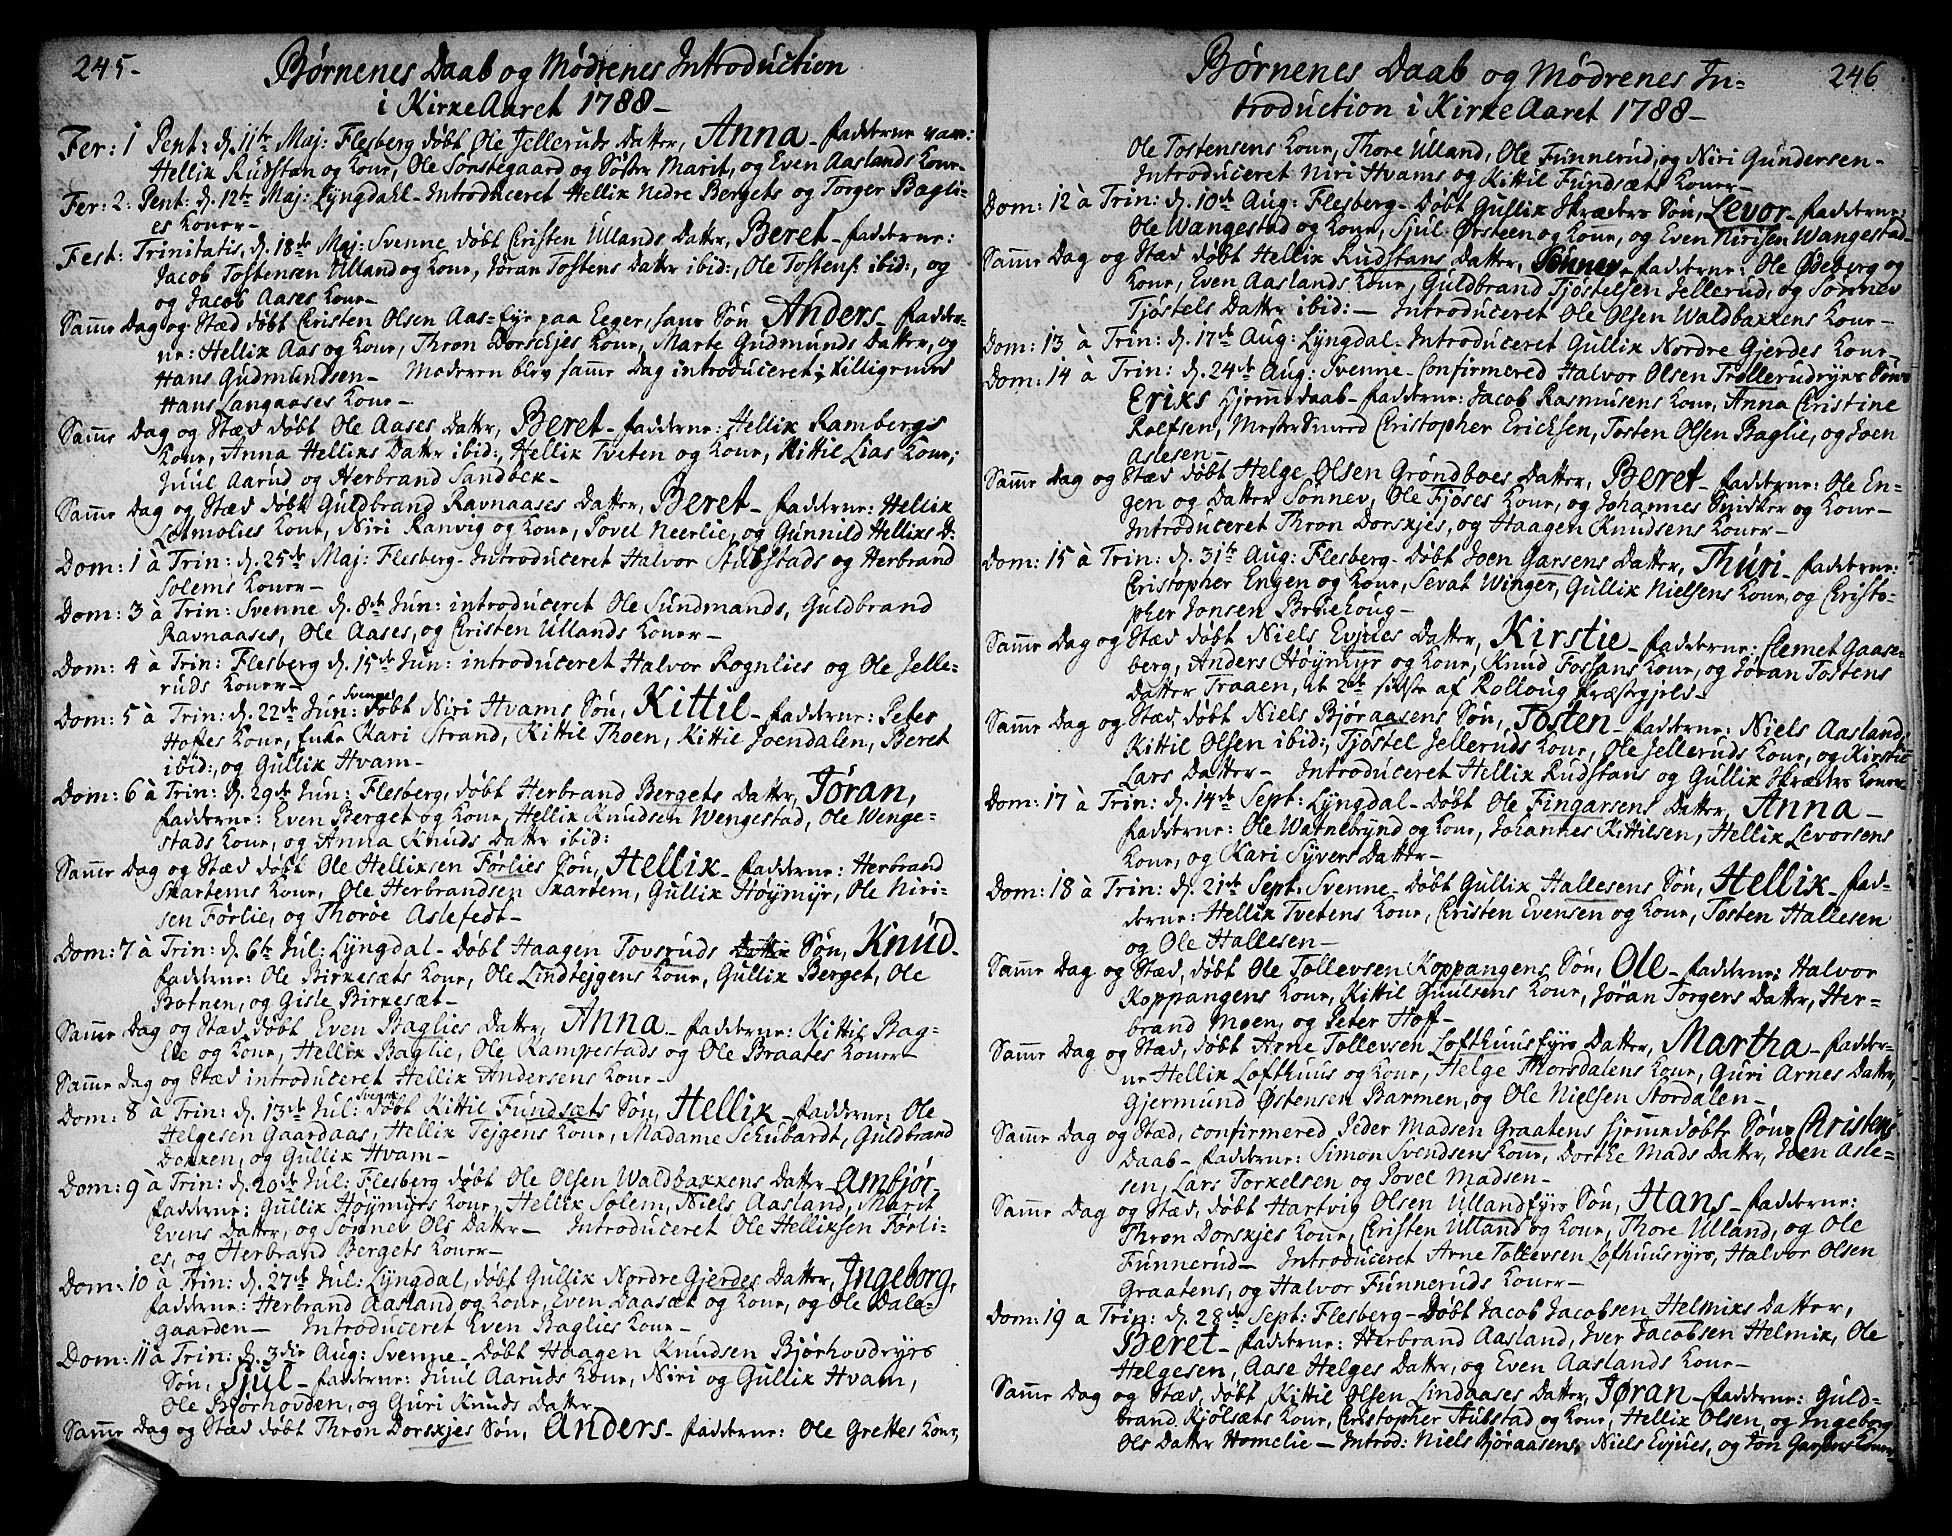 245.
Børnenes Daab og Mødrenes Introduction
i Kirke Aaret 1788-
Fer: 1 Pent: d. 11te Maj: Flesberg døbt Ole Jelleruds Datter, Anna - fadderne vare:
Hellik Rudstan og Kone, Ole Sønstegaard og Søster Marit, og Even Aaslands Kone-
Fer: 2. Pent: d. 12te Maj: Lyngdahl - Introduceret Hellik Nedre Bergets og Torger Bagli-
es Koner-
Fest: Trinitatis, d. 18de Maj: Svenne døbt Christen Ullands Datter, Beret - fadderne:
Jacob Tostensen Ulland og Kone, Jøran Tostens Datter ibid:, Ole Tostens: ibid:, og
og Jacob Aases Kone-
Samme Dag og Stæd døbt Christen Olsen Aas-Eye paa Eeger, hans Søn Anders - fadder-
ne: Hellik Aas og Kone, Thron Dorsckjes Kone, Marte Gudmunds Datter, og
Hans Gudmundsen - Moderen blev samme Dag introduceret; Killigemed
Hans Langaases Kone-
Samme Dag og Stæd døbt Ole Aases Datter, Beret - fadderne: Hellik Rambergs
Kone, Anna Helliks Datter ibid:, Hellik Tveten og Kone, Kittil Lias Kone;
Juul Aarud og Herbrand Sandbek-
Samme Dag og Stæd døbt Guldbrand Ravnaases Datter, Beret - fadderne: Hellik
Lofmolies Kone, Niri Ranvig og Kone, Povel Neerlie, og Gunnild Helliks D:
Dom: 1 à Trin: d. 25de Maj: Flesberg - Introduceret Halvor Stubstads og Herbrand
Solems Koner-
Dom: 3 à Trin: Svenne d. 8de Jun: introduceret Ole Sundmands, Guldbrand
Ravnaases, Ole Aases, og Christen Ullands Koner-
Dom: 4 à Trin: Flesberg d. 15de Jun: introduceret Halvor Rognlies og Ole Jelle-
ruds Koner-
Dom: 5 à Trin: d. 22de Jun: Svenne døbt Niri Hvams Søn, Kittil - fadderne: Peter
Hoftes Kone, Enke Kari Strand, Kittil Thoen, Kittil Joendalen, Beret
ibid:, og Gullik Hvam-
Dom: 6 à Trin: d. 29de Jun: Flesberg, døbt Herbrand Bergets Datter, Jøran,
fadderne: Even Berget og Kone, Hellik Knudsen Wengestad, Ole Wenge-
stads Kone, og Anna Knuds Datter ibid:
Samme Dag og Stæd døbt Ole Helliksen Førlies Søn, Hellik - fadderne: Herbrand
Skartems Kone, Ole Herbrandsen Skartem, Gullik Høymyr, Ole Niri-
sen Førlie, og Thoroe Aslefedt-
Dom: 7 à Trin: d. 6te Jul: Lyngdal - Døbt Haagen Tovsruds Datter Søn, Knud.
fadderne: Ole Birkesæts Kone, Ole Lindtejgens Kone, Gullik Berget, Ole
Botnen, og Gisle Birkesæt-
Samme Dag og Stæd, døbt Even Baglies Datter, Anna - fadderne: Kittil Bag-
lie og Kone, Hellik Baglie, Ole Kampestads og Ole Braates Koner-
Samme Dag og Stæd introduceret Hellik Andersens Kone-
Dom: 8 à Trin: d. 13de Jul: Svenne døbt Kittil Fundsæts Søn, Hellik - fadderne: Ole
Helgesen Gaardaas, Hellik Tejgens Kone, Madame Schubardt, Guldbrand
Dokken, og Gullik Hvam-
Dom: 9 à Trin: d. 20de Jul: Flesberg døbt Ole Olsen Waldbakkens Datter Ambjør
fadderne: Gullik Høymyrs Kone, Hellik Solem, Niels Aasland, Marit
Evens Datter, og Sønnev Ols Datter - Introduceret Ole Helliksen Førli-
es, og Herbrand Bergets Koner-
Dom: 10 à Trin: d. 27de Jul: Lyngdal, døbt Gullik Nordre Gjerdes Datter, Ingeborg,
fadderne: Herbrand Aasland og Kone, Even Daasæt og Kone, og Ole Dale-
gaarden - Introduceret Even Baglies Kone-
Dom: 11 à Trin: d. 3die Aug: Svenne - Døbt Haagen Knudsen Bjørhovdryrs
Søn, Sjul - fadderne: Juul Aaruds Kone, Niri og Gullik Hvam,
Ole Bjørhovden, og Guri Knuds Datter-
Samme Dag og Stæd døbt Thron Dorskjes Søn, Anders - fadderne: Ole Grettes Kone,
246
Børnenes Daab og Mødrenes In-
troduction i Kirke Aaret 1788-
Ole Tostensens Kone, Thore Ulland, Ole Funnerud, og Niri Gundersen-
Introduceret Niri Hvams og Kittil Fundsæts Koner-
Dom: 12 à Trin: d. 10de Aug: Flesberg - Døbt Gullik Skræders Søn, Levor - fadderne:
Ole Wangestad og Kone, Sjul Ørsteen og Kone, og Even Nirisen Wangestad-
Samme Dag og Stæd døbt Hellik Rudstans Datter, Sønnev - fadderne: Ole Ødeberg og
Kone, Even Aaslands Kone, Guldbrand Tjøstelsen Jellerud, og Sønnev
Tjøstels Datter ibid:- Introduceret Ole Olsen Waldbakkens Kone-
Dom: 13 à Trin: d. 17de Aug: Lyngdal - Introduceret Gullik Nordre Gjerdes Kone-
Dom: 14 à Trin: d. 24de Aug: Svenne - Confirmered Halvor Olsen Trøllerudryes Søns
Eriks Hjemmedaab - fadderne: Jacob Rasmusens Kone, Anna Christine
Rolfsen, Mester Smed Christopher Ericksen, Tosten Olsen Baglie, og Joen
Aslesen-
Samme Dag og Stæd døbt Helge Olsen Grøndboes Datter, Beret - fadderne: Ole En-
gen og Datter Sønnev, Ole Fjøses Kone, og Johannes Snidker og Kone-
Introduceret Thron Dorskjes, og Haagen Knudsens Koner-
Dom: 15 à Trin: d. 31te Aug: Flesberg - Døbt Joen Garsens Datter, Thuri - fadderne:
Christopher Engen og Kone, Sevat Winger, Gullik Nielsens Kone, og Christo-
pher Jonsen Bruehoug-
Samme Dag og Stæd døbt Niels Evjues Datter, Kirstie - fadderne: Clemet Gaase-
berg, Anders Høymyr og Kone, Knud Fossans Kone, og Jøran Tostens
Datter Traaen, de 2de sidste af Rolloug Præstegjeld-
Samme Dag og Stæd, døbt Niels Bjøraasens Søn, Tosten - fadderne: Niels Aasland,
Kittil Olsen ibid:, Tjøstel Jelleruds Kone, Ole Jelleruds Kone, og Kirstie
Lars Datter - Introduceret Hellik Rudstans og Gullik Skræders Koner-
Dom: 17 à Trin: d. 14de Sept: Lyngdal - Døbt Ole Fingarsens Datter, Anna -
fadderne: Ole Watnebrynd og Kone, Johannes Kittilsen, Hellik Levorsens
Kone, og Kari Syvers Datter-
Dom: 18 à Trin: d. 21de Sept: Svenne - Døbt Gullik Hallesens Søn, Hellik - fad-
derne: Hellik Tvetens Kone, Christen Evensen og Kone, Tosten Hallesen
og Ole Hallesen-
Samme Dag og Stæd, døbt Ole Tollevsen Koppangens Søn, Ole - fadderne: Halvor
Koppangens Kone, Kittil Guulsens Kone, Jøran Torgers Datter, Her-
brand Moen, og Peter Hoff-
Samme Dag og Stæd, døbt Arne Tollevsen Lofthuuseyes Datter, Martha - fadder-
ne Hellik Lofthuus og Kone, Helge Thorsdalens Kone, Guri Arnes Datter,
Gjermund Østensen Barmen, og Ole Nielsen Stordalen-
Samme Dag og Stæd, confirmered Peder Madsen Graatens hjemmedøbte Søns Christens
Daab - fadderne: Simon Svendsens Kone, Dorthe Mads Datter, Joen Asle-
sen, Lars Torkelsen og Povel Madsen-
Samme Dag og Stæd, døbt Hartvig Olsen Ullandeyes Søn, Hans - fadderne:
Thron Dorskjes Kone, Christen Ulland og Kone, Thore Ulland, og Ole
Funnerud - Introduceret Arne Tollevsen Lofthuuseyes, Halvor Olsen
Graatens, og Halvor Funneruds Koner-
Dom: 19 a Trin: d. 28de Sept: Flesberg - Døbt Jacob Jacobsen Helmiks Datter,
Beret - fadderne: Herbrand Aasland, Iver Jacobsen Helmik, Ole
Helgesen, Aase Helges Datter, og Even Aaslands Kone-
Samme Dag og Stæd, døbt Kittil Olsen Lindaases Datter, Jøran - fadderne: Guld-
brand Kjølsæts Kone, Christopher Stubstad og Kone, Hellik Olsen, og Ingeborg
Ols Datter Homelie - Introd: Niels Bjøraasens, Niels Evjues, og Jon Garsens Koner